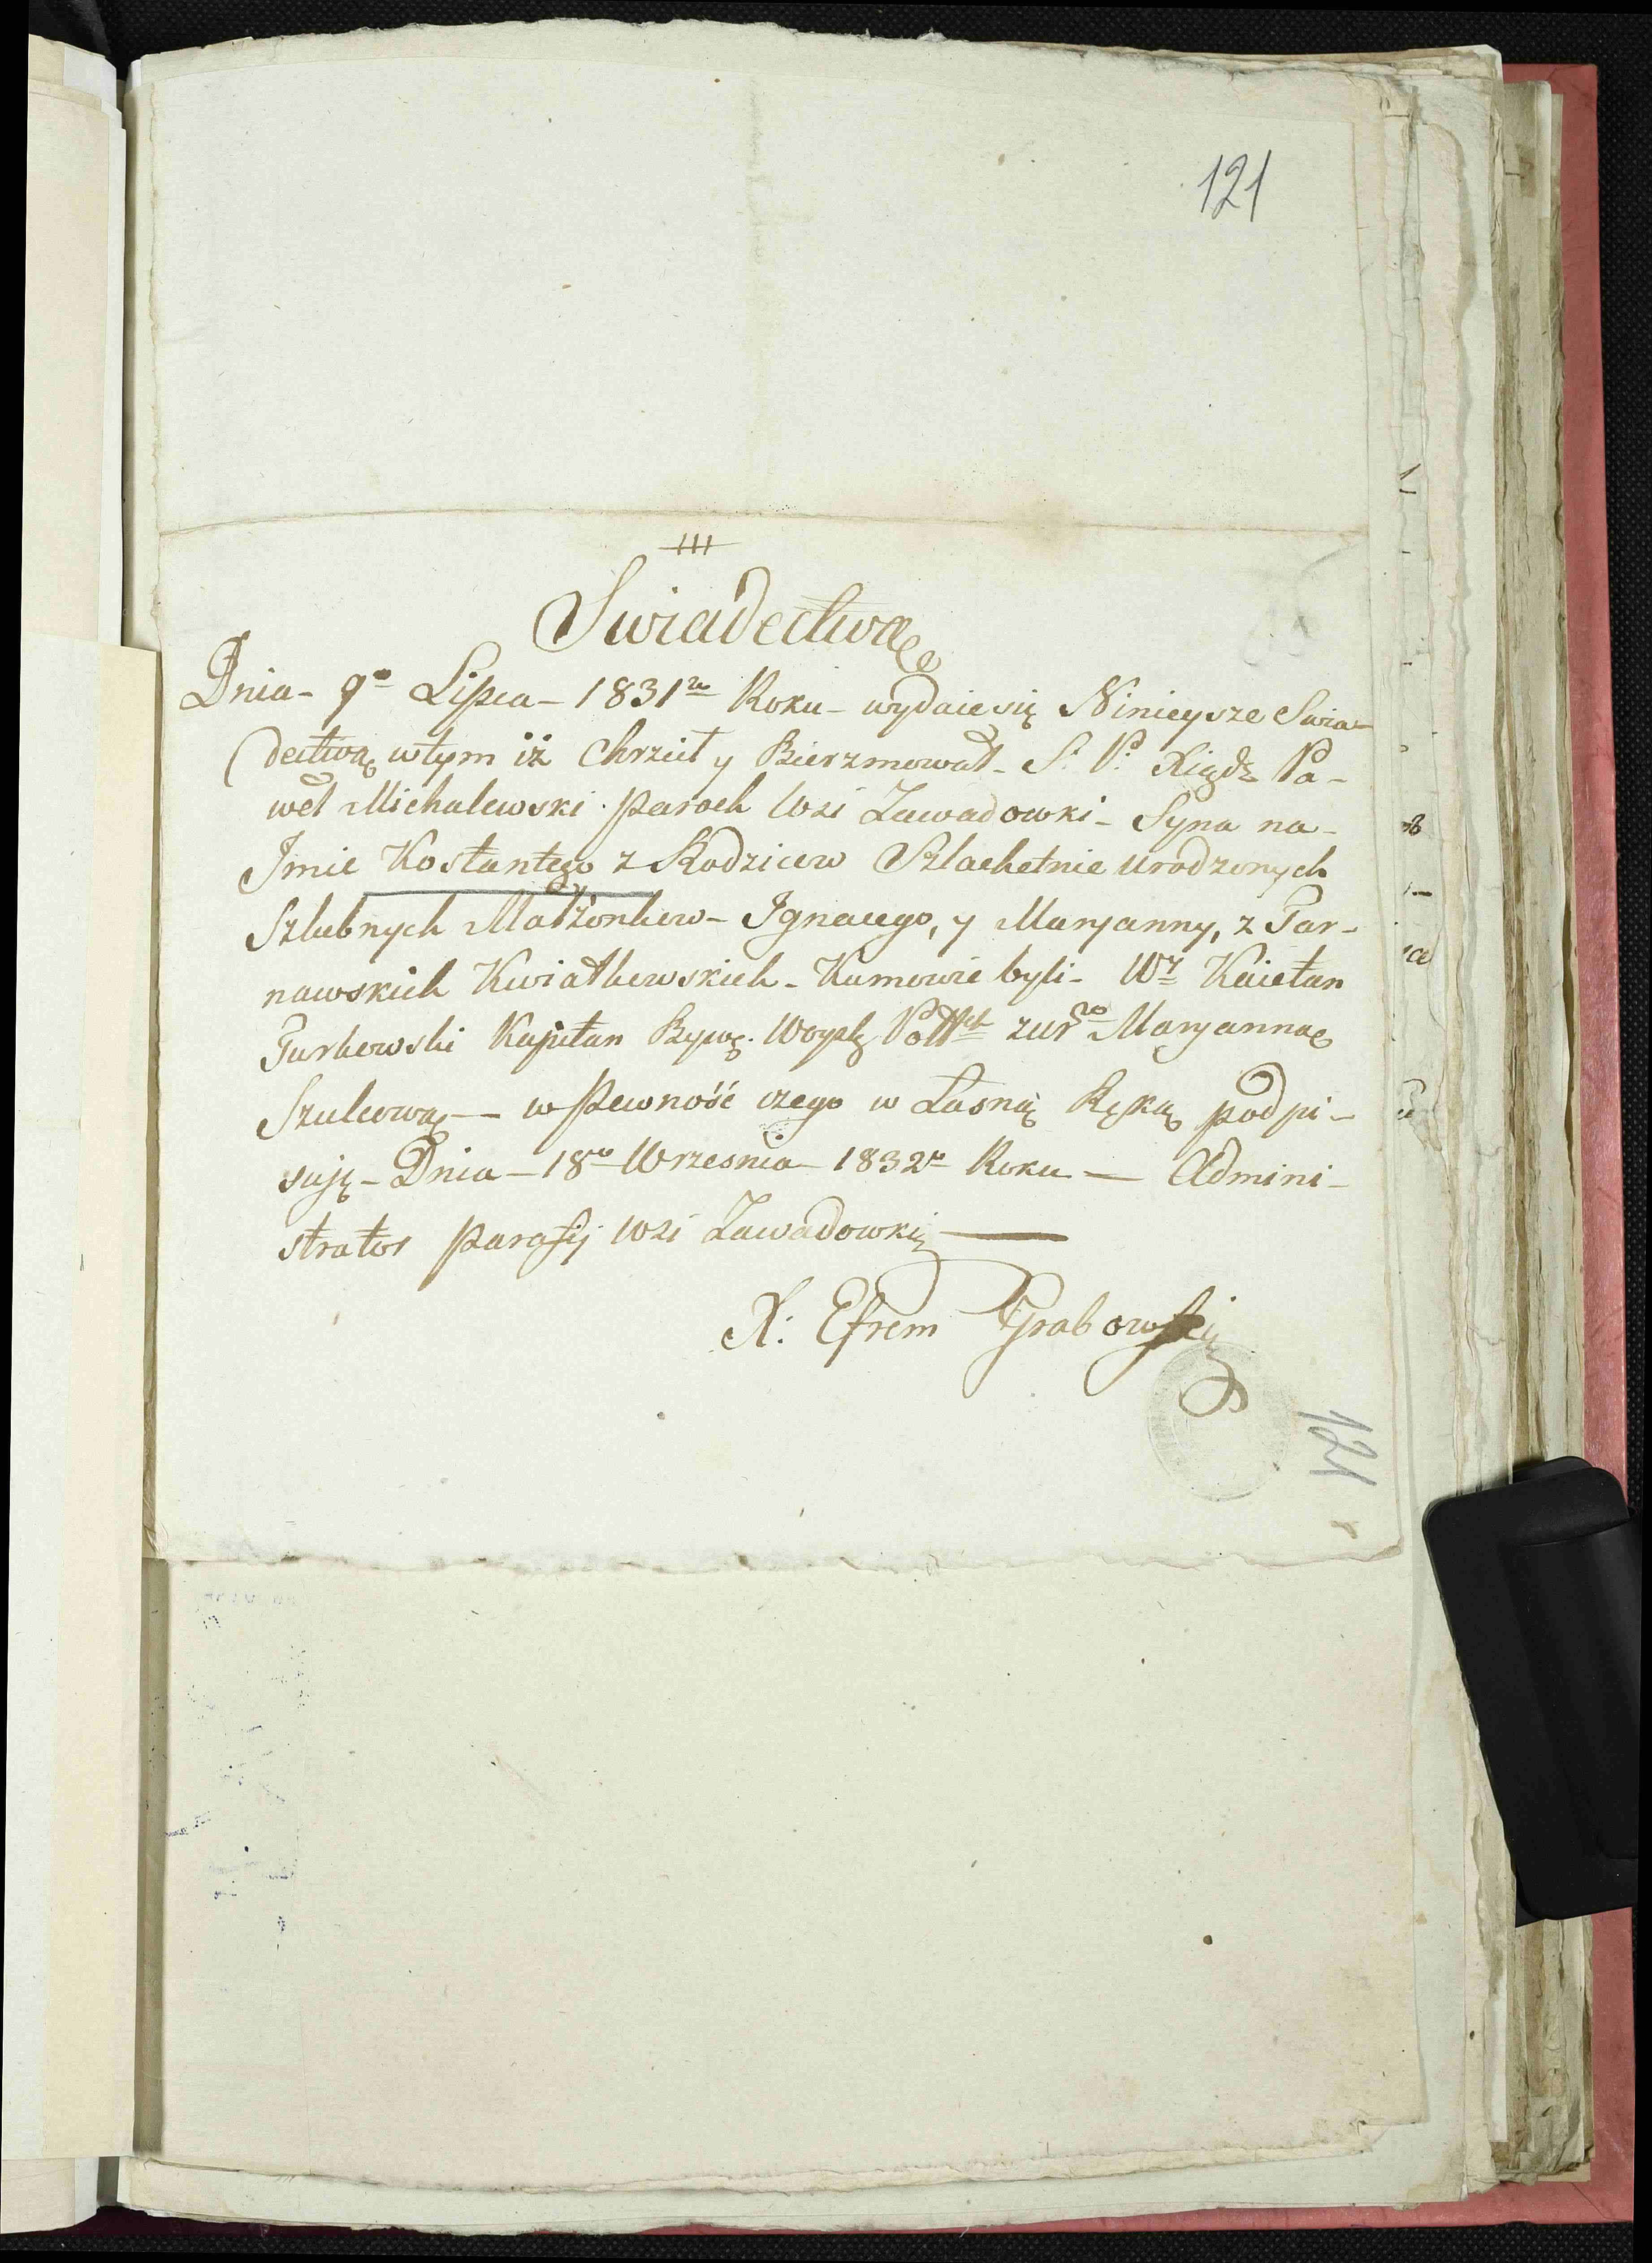 121
Swiadectwo
Dnia - 9º Lipca - 1831ᵒ Roku - wydaie się Ninieysze Swia-
dectwo, wtym iż Chrzcił y Bierzmował - S. P. Xiądz Pa-
weł Michalewski Paroch Wsi Zawadowki - Syna na-
Jmie Kostantego z Rodzicow Szlachetnie urodzonych
Szlubnych Małżonkow - Ignacego, y Maryanny, z Tar-
nawskich Kwiatkowskich - Kumowie byli - Wʸ Kaietan
Turkowski Kapitan Byw. Woysk Polˢᵏ zur Maryanną
Szulcową - w Pewność czego w Łasną Ręką podpi-
suję - Dnia - 18º Wrzesnia - 1832º Roku - Admini-
strator Parafij Wsi Zawadowki
X: Efrem Grabowski
121